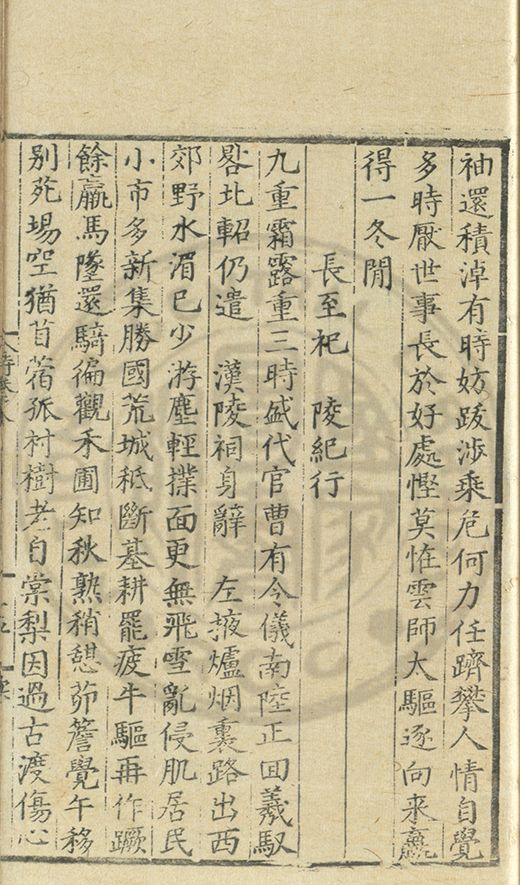 袖還積淖有時妨跋涉乘危何力任躋攀人情自覺
多時厭世事長於好處慳莫恠雲師太驅逐向来贏
得一冬閒
長至祀　陵紀行
九重霜露重三時盛代官曹有令儀南陸正回羲馭
晷北軺仍遣　漢陵祠身辭　左掖爐烟裏路出西
郊野水湄已少游塵輕撲面更無飛雪亂侵肌居民
小市多新集勝國荒城秪斷基耕罷疲牛驅再作蹶
餘羸馬墜還騎徧觀禾圃知秋熟稍憩茆簷覺午移
别苑場空猶苜蓿孤村樹老自棠梨因過古渡傷心